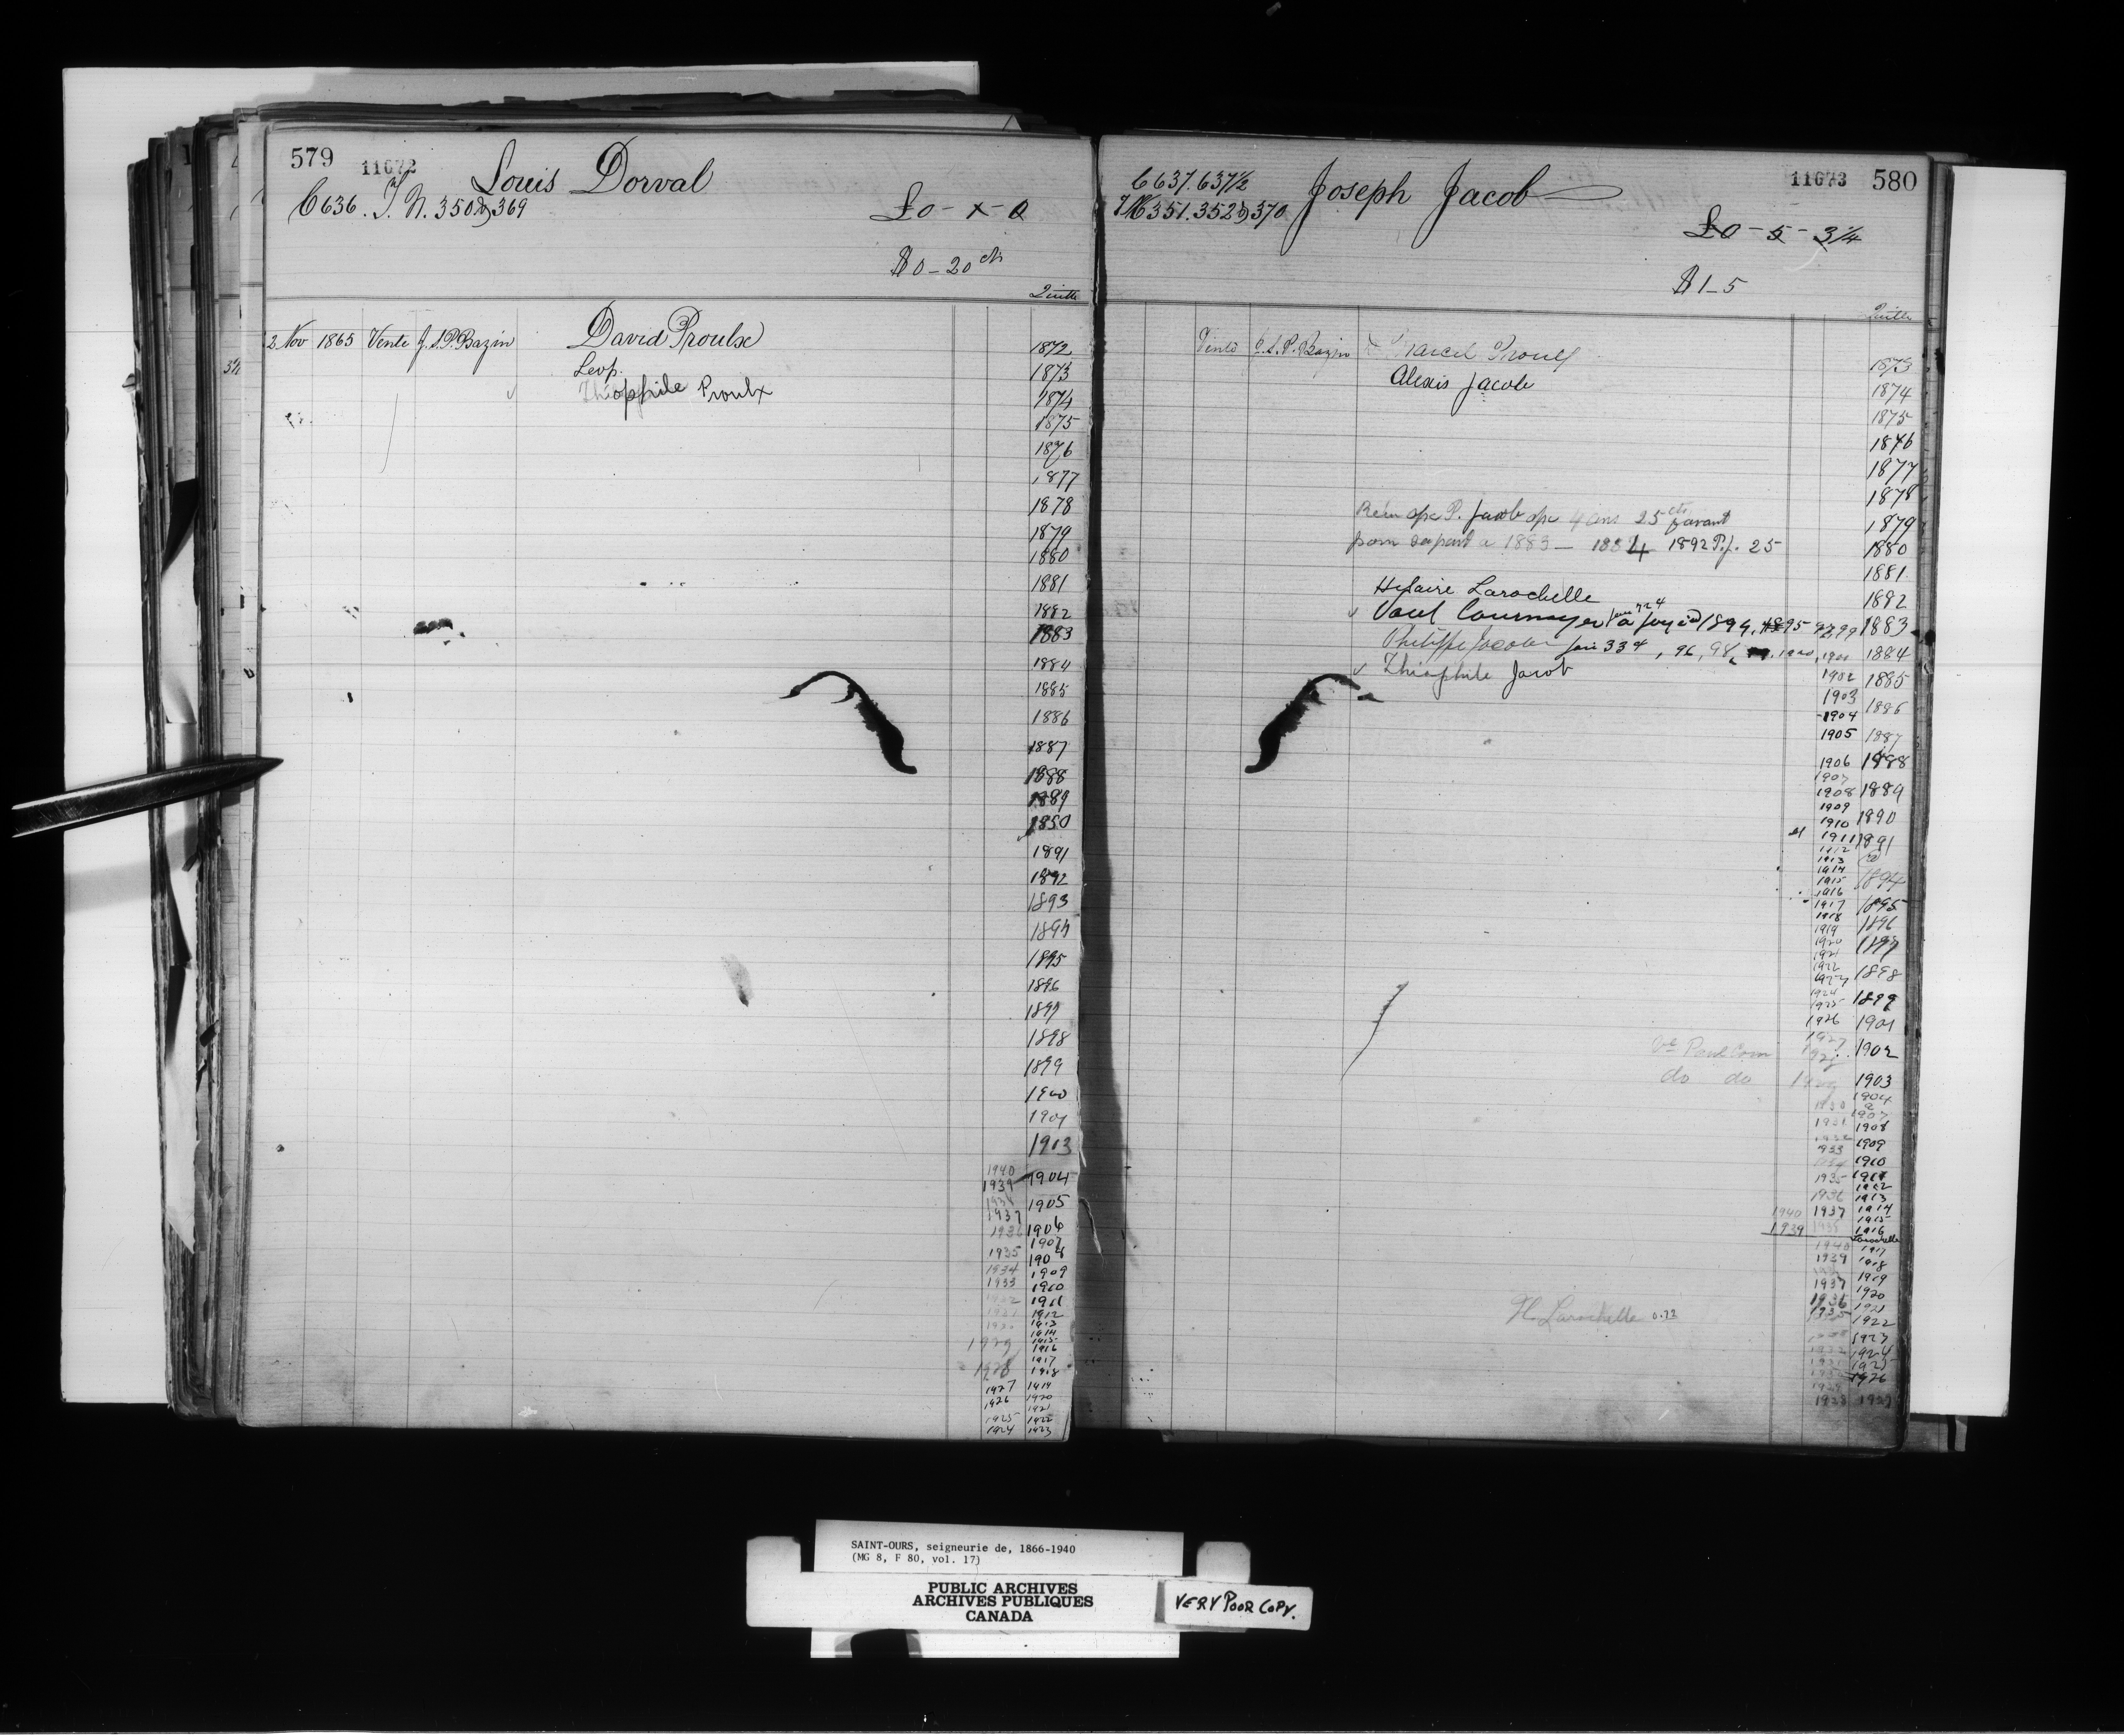 579 11672 Louis Dorval
C 636. T. N. 350 & 369
£0 - x - 0
$0 - 20 cts
Quitte
2 Nov 1865 Vente J. S. P. Bazin David Proulx
Leop.
Théophile Proulx
1872
1873
1874
1875
1876
1877
1878
1879
1880
1881
1882
1883
1884
1885
1886
1887
1888
1889
1890
1891
1892
1893
1894
1895
1896
1897
1898
1899
1900
1901
1903
1940
1939 1904
1905
1937
1936 1906
1907
1935 1908
1934 1909
1933 1910
1911
1912
1913
1914
1915
1929 1916
1917
1928 1918
1927 1919
1926 1920
1921
1925 1922
1924 1923
C 637. 637½ Joseph Jacob 11673 580
351. 352 & 370
£0 - 5 - 3¼
$1 - 5
Quitte
Vente J. S. P. Bazin Marcel Proulx
Alexis Jacob
1873
1874
1875
1876
1877
1878
P. Jacob 4 ans 25 cts
1879
a 1883 — 1884 1892 P.J. 25
1880
1881
Hilaire Larochelle
1882
1894, 1895
1883
Philippe Jacob 334, 96, 98, 1900, 1901
1884
Théophile Jacob
1902 1885
1903
1904 1886
1905 1887
1906 1888
1907
1908 1889
1909
1910 1890
1911 1891
1912
1913
1914
1915 1894
1916
1917 1895
1918
1919 1896
1920 1897
1921
1922 1898
1923
1924
1925 1899
1926 1901
1927
Ve Paul Cour 1902
do do 1903
1904
1930 a
1907
1931 1908
1909
1933
1910
1935 1911
1912
1936 1913
1940 1937 1914
1915
1939 1916
Larochelle
1940 1917
1939 1918
1919
1937
1936 1920
1935 1921
H. Larochelle 0.72
1922
1923
1924
1925
1926
1928 1927
SAINT-OURS, seigneurie de, 1866-1940
(MG 8, F 80, vol. 17)
PUBLIC ARCHIVES
ARCHIVES PUBLIQUES
CANADA
VERY POOR COPY.